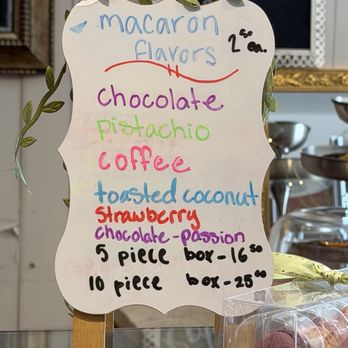 macaron
flavors 2⁵⁰ ea.
chocolate
pistachio
coffee
toasted coconut
strawberry
chocolate-passion
5 piece box-16⁵⁰
10 piece box-25⁰⁰